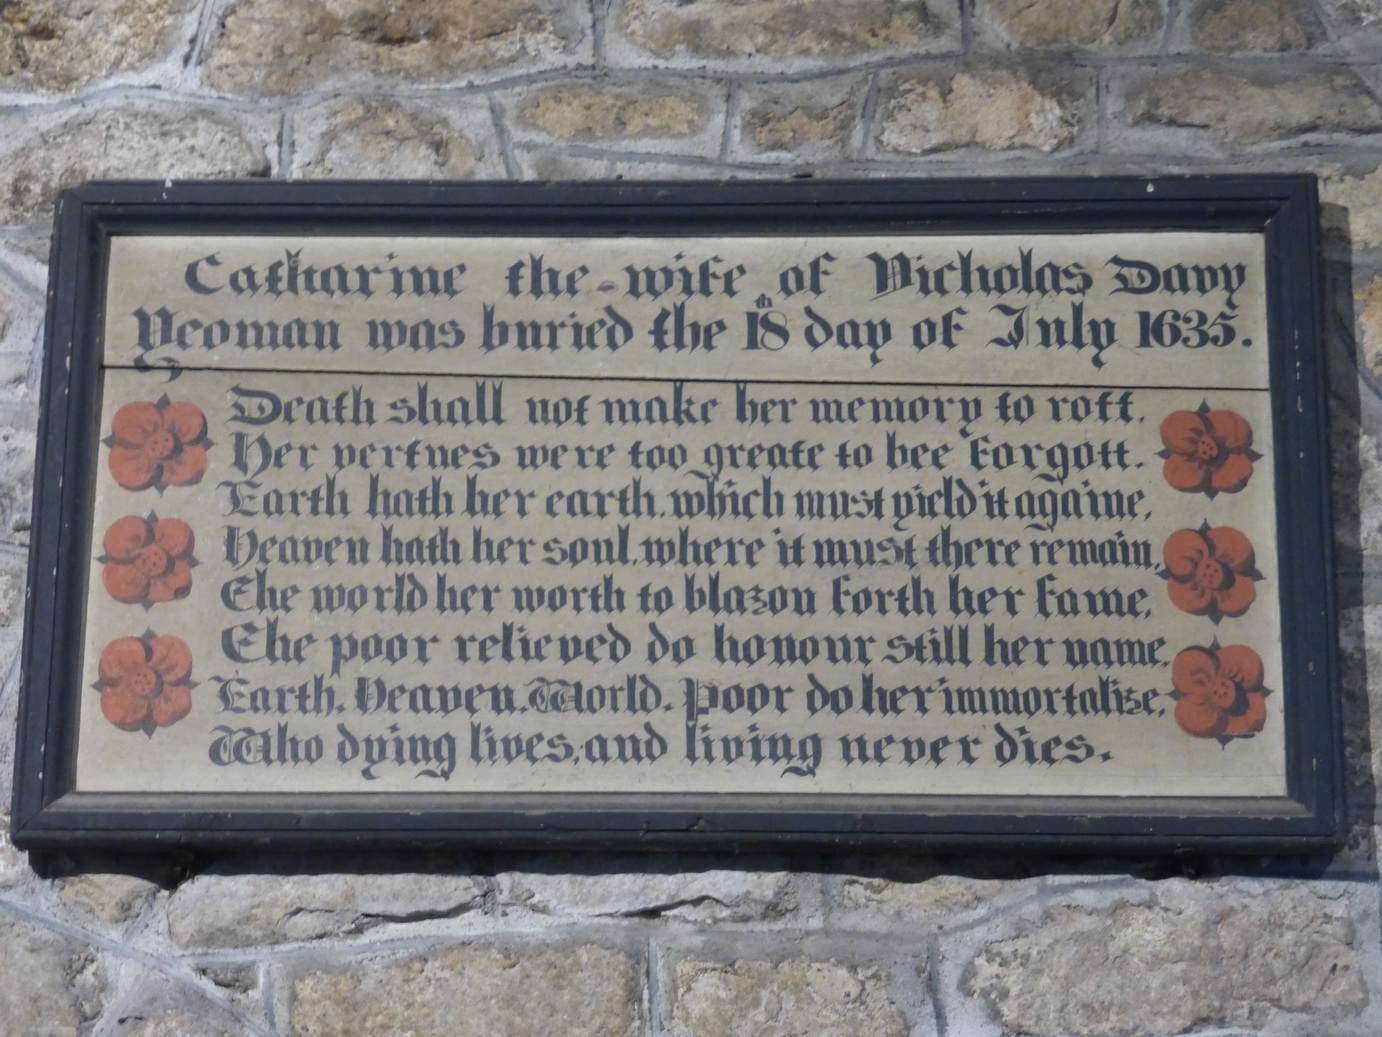 Catharine the wife of Nicholas Davy
Yeoman was buried the 18th day of July 1635.
Death shall not make her memory to rott.
Her vertues were too greate to bee forgott.
Earth hath her earth, which must yield it againe,
Heaven hath her soul, where it must there remain,
The world her worth to blazon forth her fame,
The poor relieved do honour still her name.
Earth, Heaven, World, Poor do her immortalize,
Who dying lives, and living never dies.